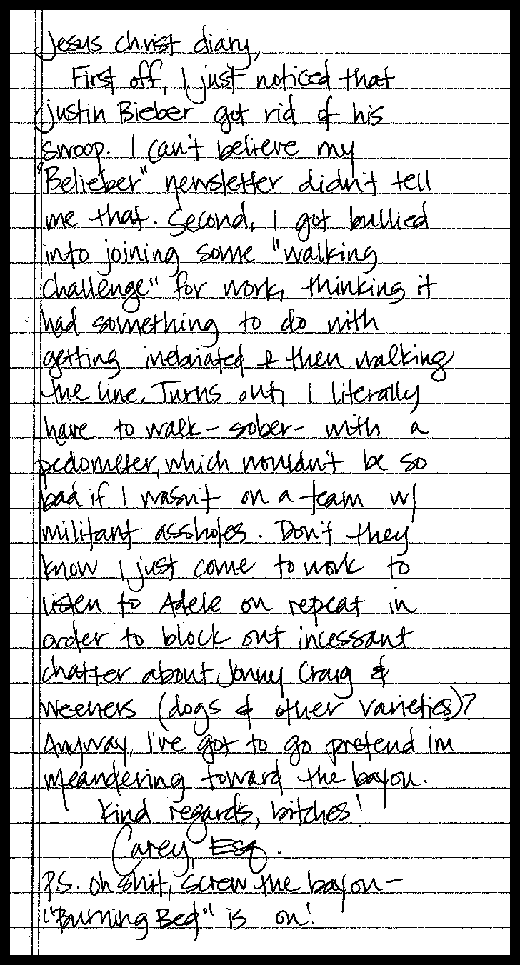 Jesus christ diary,
First off, I just noticed that
Justin Bieber got rid of his
swoop. I can't believe my
"Belieber" newsletter didn't tell
me that. Second, I got bullied
into joining some "walking
challenge" for work, thinking it
had something to do with
getting inebriated & then walking
the line. Turns out, I literally
have to walk - sober - with a
pedometer, which wouldn't be so
bad if I wasn't on a team w/
militant assholes. Don't they
know I just come to work to
listen to Adele on repeat in
order to block out incessant
chatter about Jonny Craig &
weeners (dogs & other varieties)?
Anyway, I've got to go pretend im
meandering toward the bayou.
Kind regards, bitches!
Carey, Esq.
P.S. oh shit, screw the bayou -
"Burning Bed" is on!